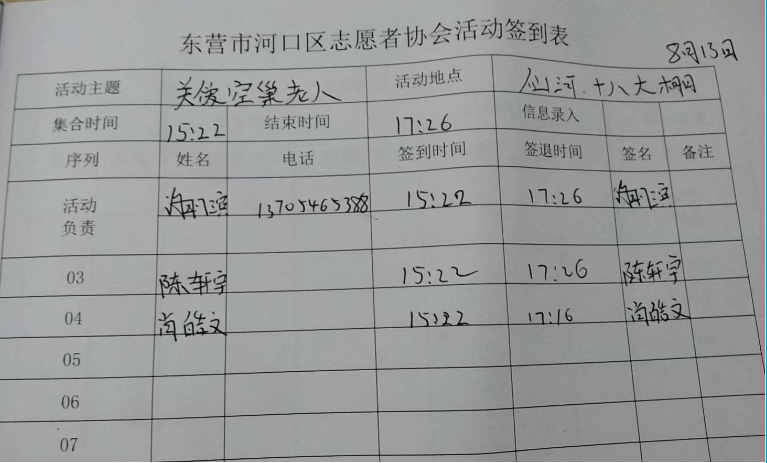 东营市河口区志愿者协会活动签到表
8月13日
活动主题 关爱空巢老人 活动地点 仙河.十八大棚
集合时间 15:22 结束时间 17:26 信息录入
序列 姓名 电话 签到时间 签退时间 签名 备注
活动负责 13705465388 15:22 17:26
03 陈轩宇 15:22 17:26 陈轩宇
04 尚皓文 15:22 17:16 尚皓文
05
06
07